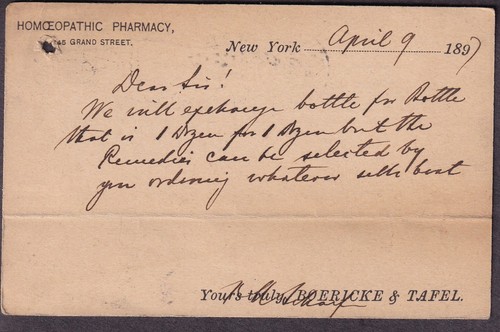 HOMŒOPATHIC PHARMACY,
145 GRAND STREET.
New York April 9 1897
Dear Sir!
We will exchange bottle for Bottle
that is 1 Dozen for 1 Dozen but the
Remedies can be selected by
you ordering whatever sells best
Yours truly, BOERICKE & TAFEL.